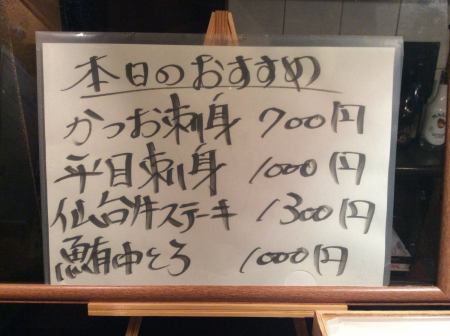 本日のおすすめ
かつお刺身 700円
平目刺身 1000円
仙台牛ステーキ 1300円
鮪中とろ 1000円